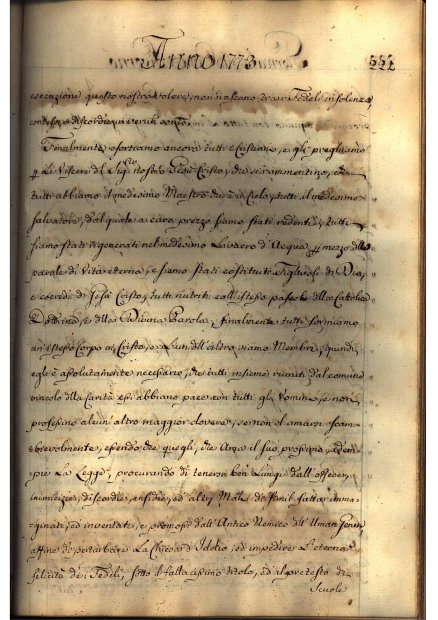 Anno 1773
222
esecuzione questo nostro volere, non nascano trà i Fedeli insolenza,
contese, e discordie, i
Finalmente esortiamo ancora tutti i Cristiani, e gli preghiamo
p Le Viscere del Sigre nostro Gesù Cristo, che si rammentino, che
tutti abbiamo il medesimo Maestro che è in Cielo, tutti il medesimo
Salvatore, dal quale a caro prezzo siamo stati redenti, tutti
siamo stati rigenerati nel medesimo Lavacro d'Acqua p mezzo della
parola di Vita eterna, e siamo stati costituiti Figliuoli di Dio,
e coeredi di Gesù Cristo, tutti nutriti coll'istesso pascolo della Cattolica
Dottrina, e della Divina Parola, finalmente tutti formiamo
un'istesso Corpo in Cristo, e l'un dell'altro siamo Membri, quindi
egli è assolutamente necessario, che tutti insieme riuniti dal comune
vincolo della Carità essi abbiano pace con tutti gli Uomini, e non
professino alcun'altro maggior dovere, se non d'amarsi scam-
bievolmente, essendo che quegli, che Ama il suo prossimo, adem-
pie La Legge, procurando di tenersi ben Lungi dall'offese,
inimicizie, discordie, insidie, ed altri Mali di simil fatta imma-
ginate, ed inventate, e promosse dall'Antico Nemico dell'Uman Genere
affine di perturbare La Chiesa d'Iddio, ed impedire L'eterna
felicità dei Fedeli, sotto il fallacissimo titolo, ed il pretesto di
Scuole